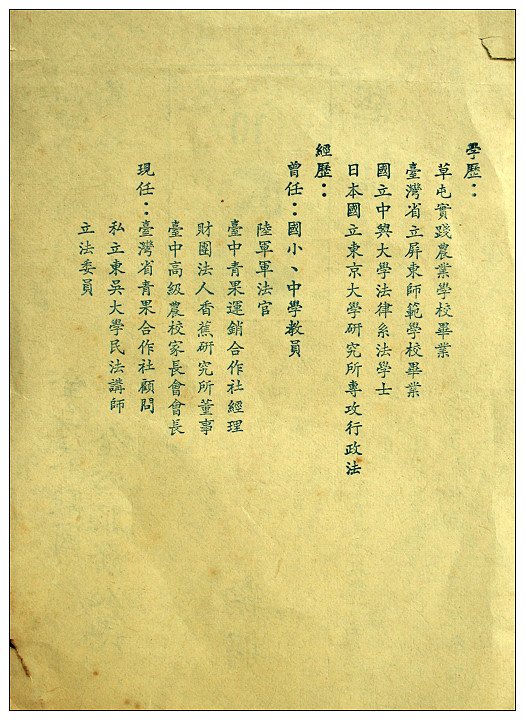 學歷：
草屯實踐農業學校畢業
臺灣省立屏東師範學校畢業
國立中興大學法律系法學士
日本國立東京大學研究所專攻行政法
經歷：
曾任：國小、中學教員
陸軍軍法官
臺中青果運銷合作社經理
財團法人香蕉研究所董事
臺中高級農校家長會會長
現任：臺灣省青果合作社顧問
私立東吳大學民法講師
立法委員